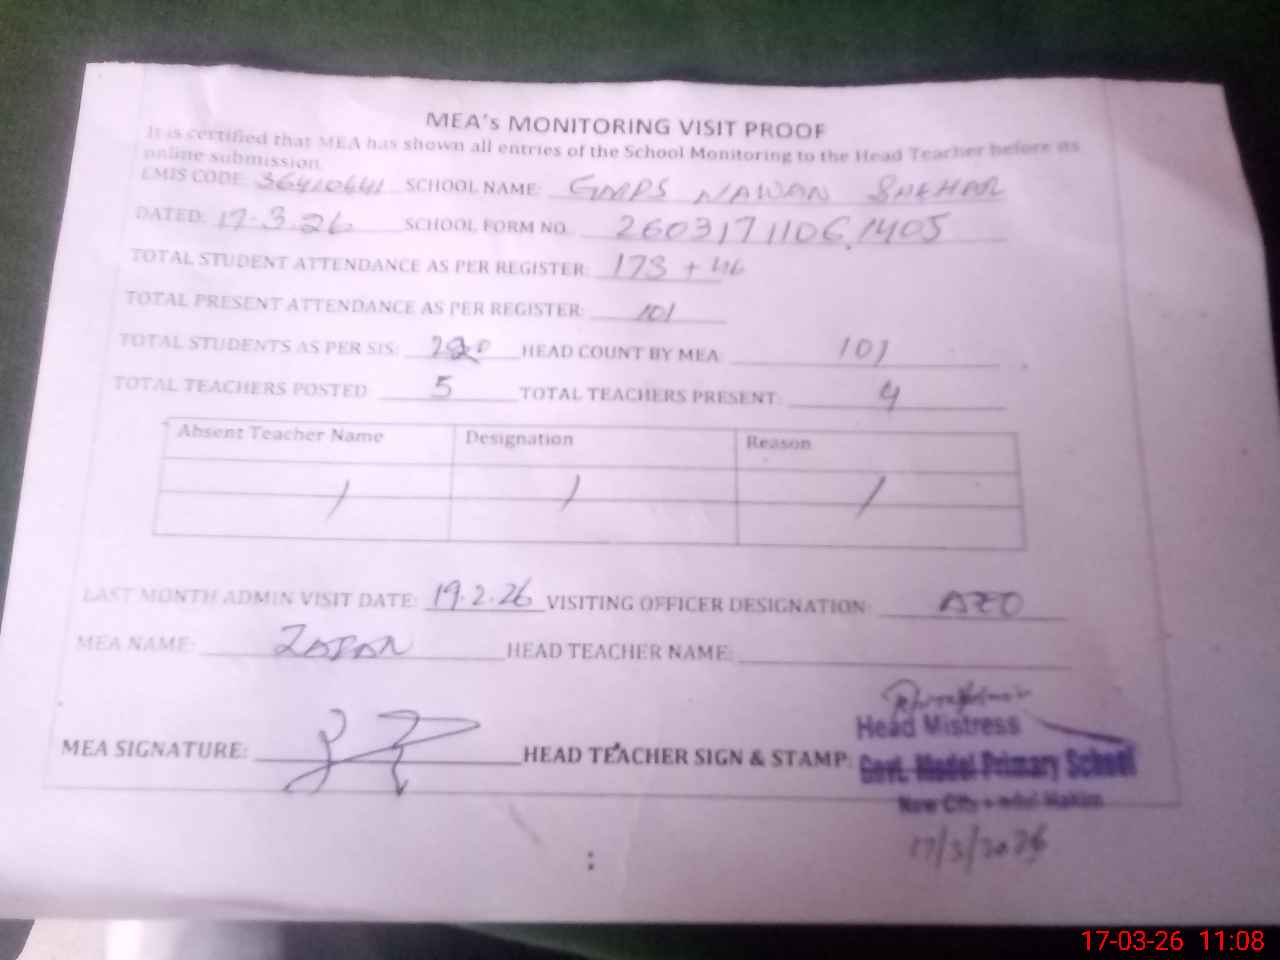 MEA's MONITORING VISIT PROOF
It is certified that MEA has shown all entries of the School Monitoring to the Head Teacher before its
online submission.
EMIS CODE: 36410641 SCHOOL NAME: GMPS NAWAN SHEHAR
DATED: 17-3-26 SCHOOL FORM NO. 26031711061405
TOTAL STUDENT ATTENDANCE AS PER REGISTER: 173 + 46
TOTAL PRESENT ATTENDANCE AS PER REGISTER: 101
TOTAL STUDENTS AS PER SIS: HEAD COUNT BY MEA: 101
TOTAL TEACHERS POSTED 5 TOTAL TEACHERS PRESENT: 4
Absent Teacher Name Designation Reason
/ / /
LAST MONTH ADMIN VISIT DATE: 19.2.26 VISITING OFFICER DESIGNATION: AEO
MEA NAME: HEAD TEACHER NAME:
Head Mistress
MEA SIGNATURE: HEAD TEACHER SIGN & STAMP:
Govt. Model Primary School
17/3/2026
17-03-26 11:08